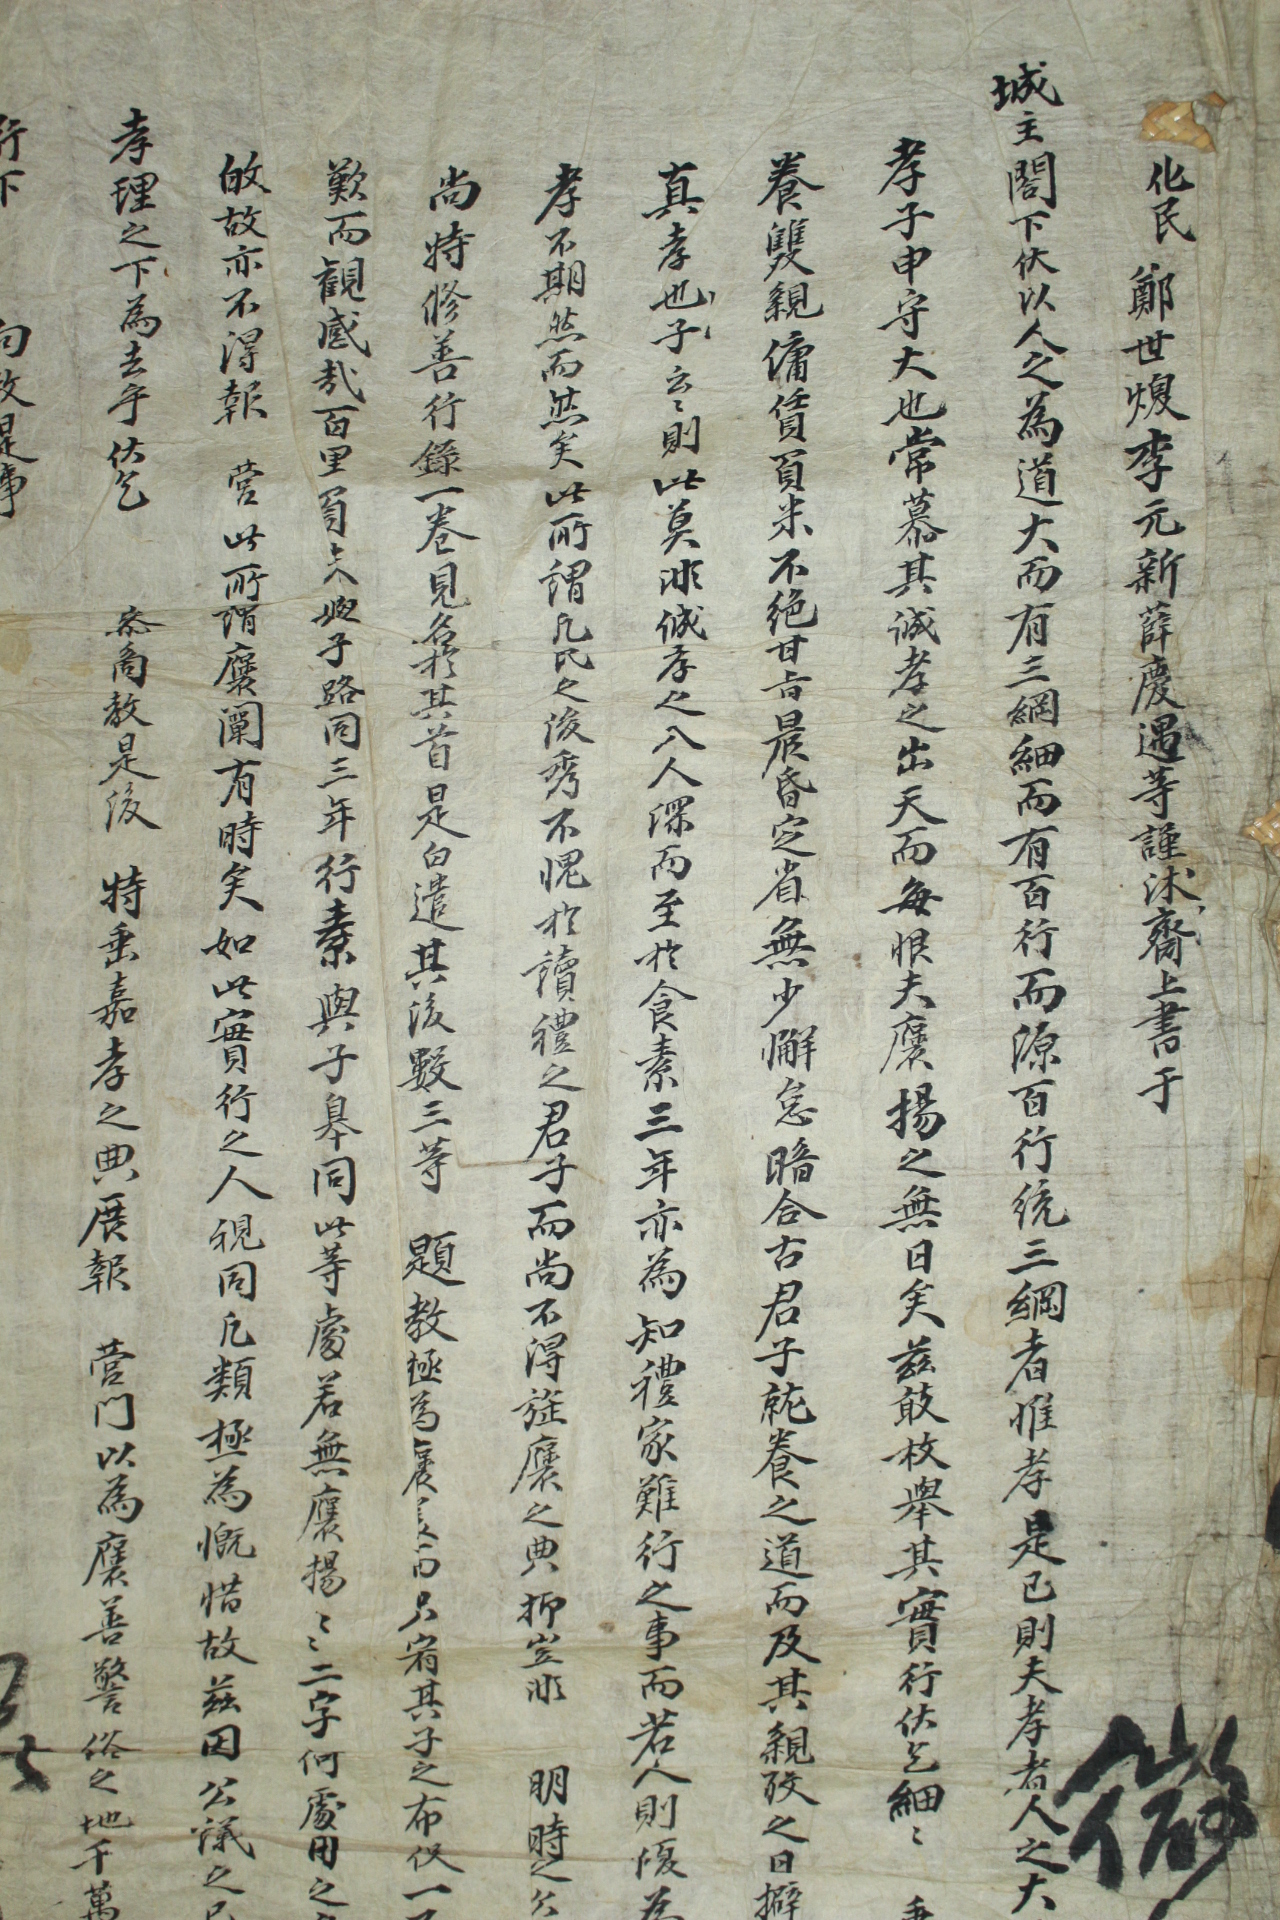 化民 鄭世煥 李元新 薛慶遇等謹沐齋上書于
城主閤下伏以人之為道大而有三綱細而有百行而源百行統三綱者惟孝是已則夫孝者人之大
孝子申守大也常慕其誠孝之出天而每恨夫褒揚之無日矣玆敢枚舉其實行伏乞細〻 垂
養雙親傭賃負米不絶甘旨晨昏定省無少懈怠暗合古君子就養之道而及其親歿之日擗
真孝也子〻云〻則此莫非誠孝之入人深而至於食素三年亦為知禮家難行之事而若人則優為
孝不期然而然矣此所謂凡民之俊秀不愧於讀禮之君子而尚不得旌褒之典抑豈非 明時之欠
尚特修善行錄一卷見名於其首是白遣其後數三等 題教極為褒美而只宥其子之布役一
歎而觀感哉百里負米與子路同三年行素與子皋同此等處若無褒揚〻〻二字何處用之
故亦不得報 營此所謂褒闡有時矣如此實行之人視同凡類極為慨惜故玆因公議之
孝理之下為去乎伏乞 叅商教是後 特垂嘉孝之典展報 營門以為褒善警俗之地千萬
行下 向教是事